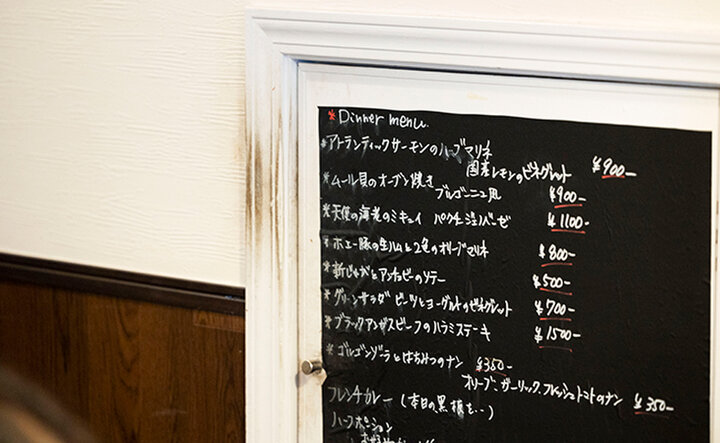 * Dinner menu.
*アトランティックサーモンのハーブマリネ
国産レモンのビネグレット ¥900-
*ムール貝のオーブン焼き
ブルゴーニュ風 ¥900-
*天使の海老のミキュイ パクチー ¥1100-
*ホエー豚の生ハムと2色のオリーブマリネ ¥800-
*新じゃがとアンチョビーのソテー ¥500-
*グリーンサラダ ビーツとヨーグルトのビネグレット ¥700-
*ブラックアンガスビーフのハラミステーキ ¥1500-
*ゴルゴンゾーラとはちみつのナン ¥350-
オリーブ、ガーリック、フレッシュトマトのナン ¥350-
フレンチカレー (本日の黒板を..)
ハーフポーション